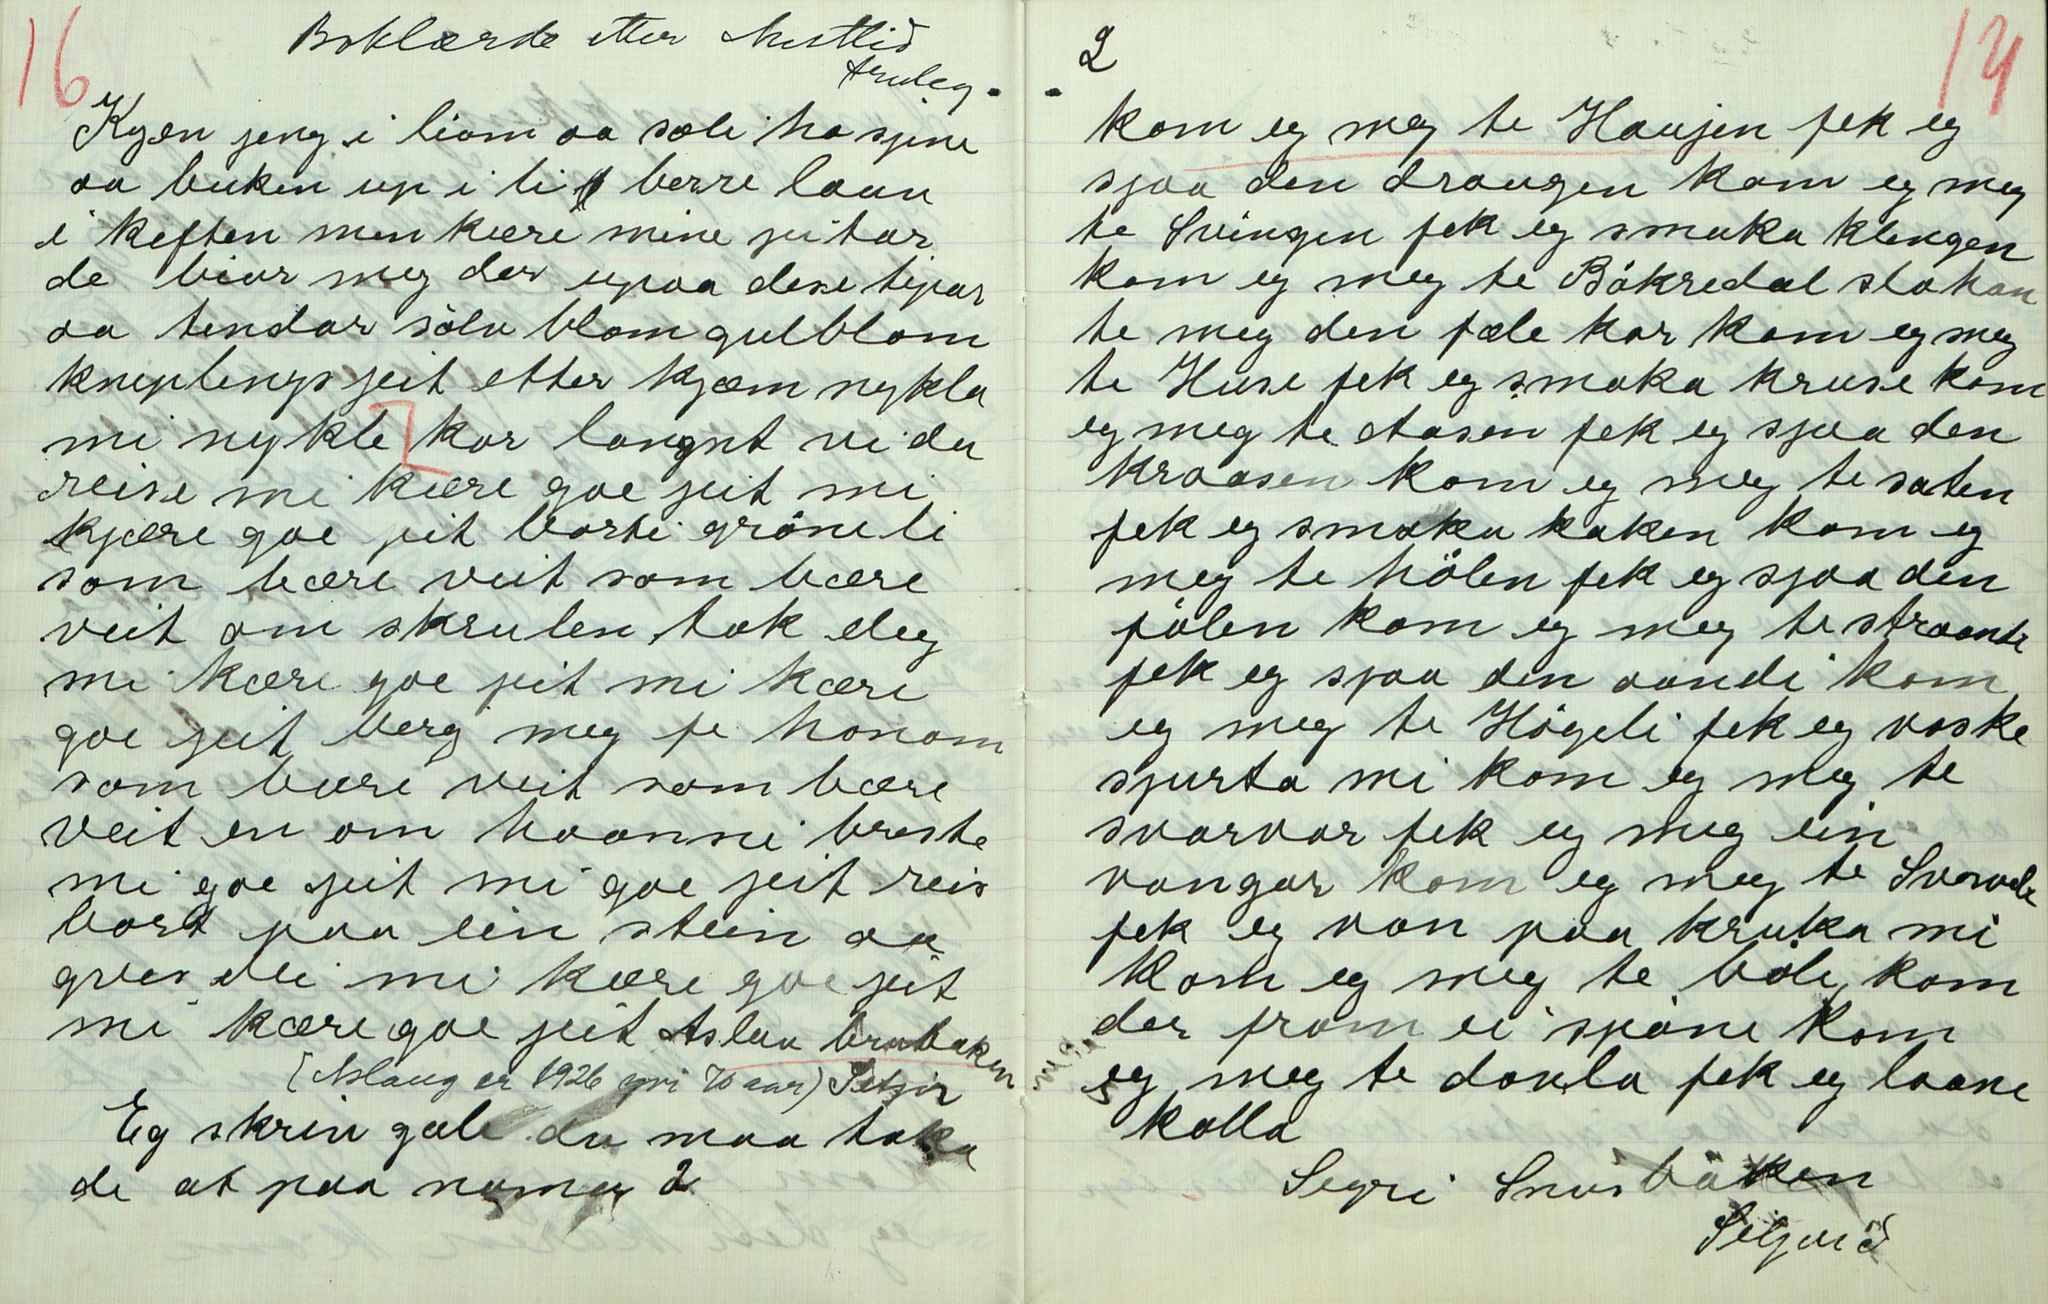 16
Boklærde etter
truleg.
Kyæn jeng i liom aa sæli ho sjine
aa buken up i li berre laau
i keften men kære mine jeitar
de biar meg der upaa dese tijar
aa tendar sölv blom gulblom
kneplengs jeit etter kjæm nykla
mi nykle kor langnt vi du
reise mi kære goe jeit mi
kjære goe jeit borti gröne li
som bære veit som bære
veit om skrulen tok deg
mi kære goe jeit mi kære
goe jeit berg meg fe honom
som bære veit som bære
veit en om haanni breste
mi goe jeit mi goe jeit reis
bort paa ein stein aa
mi kære goe jeit
mi kære goe jeit Aslau brubaken
(Aslaug er 1926 yvi 70 aar)
Eg skrin gale du maa taka
de at paa numer 2
2
14
kom eg meg te Haujen fek eg
sjaa den draugen kom eg meg
te Svingen fek eg smaka klengen
kom eg meg te Bökredal slo han
te meg den fæle kar kom eg meg
te Huse fek eg smaka kruse kom
eg meg te Aasen fek eg sjaa den
kraasen kom eg meg te saten
fek eg smaka kaken kom eg
meg te hölen fek eg sjaa den
fölen kom eg meg te straande
fek eg sjaa den aandi kom
eg meg te Högeli fek eg vaske
sjurta mi kom eg meg te
svarvar fek eg meg ein
vangar kom eg meg te
fek eg van paa kruka mi
kom eg meg te böli kom
der fram ei spöne kom
eg meg te danla fek eg laane
kalla
Segri Snusbäken